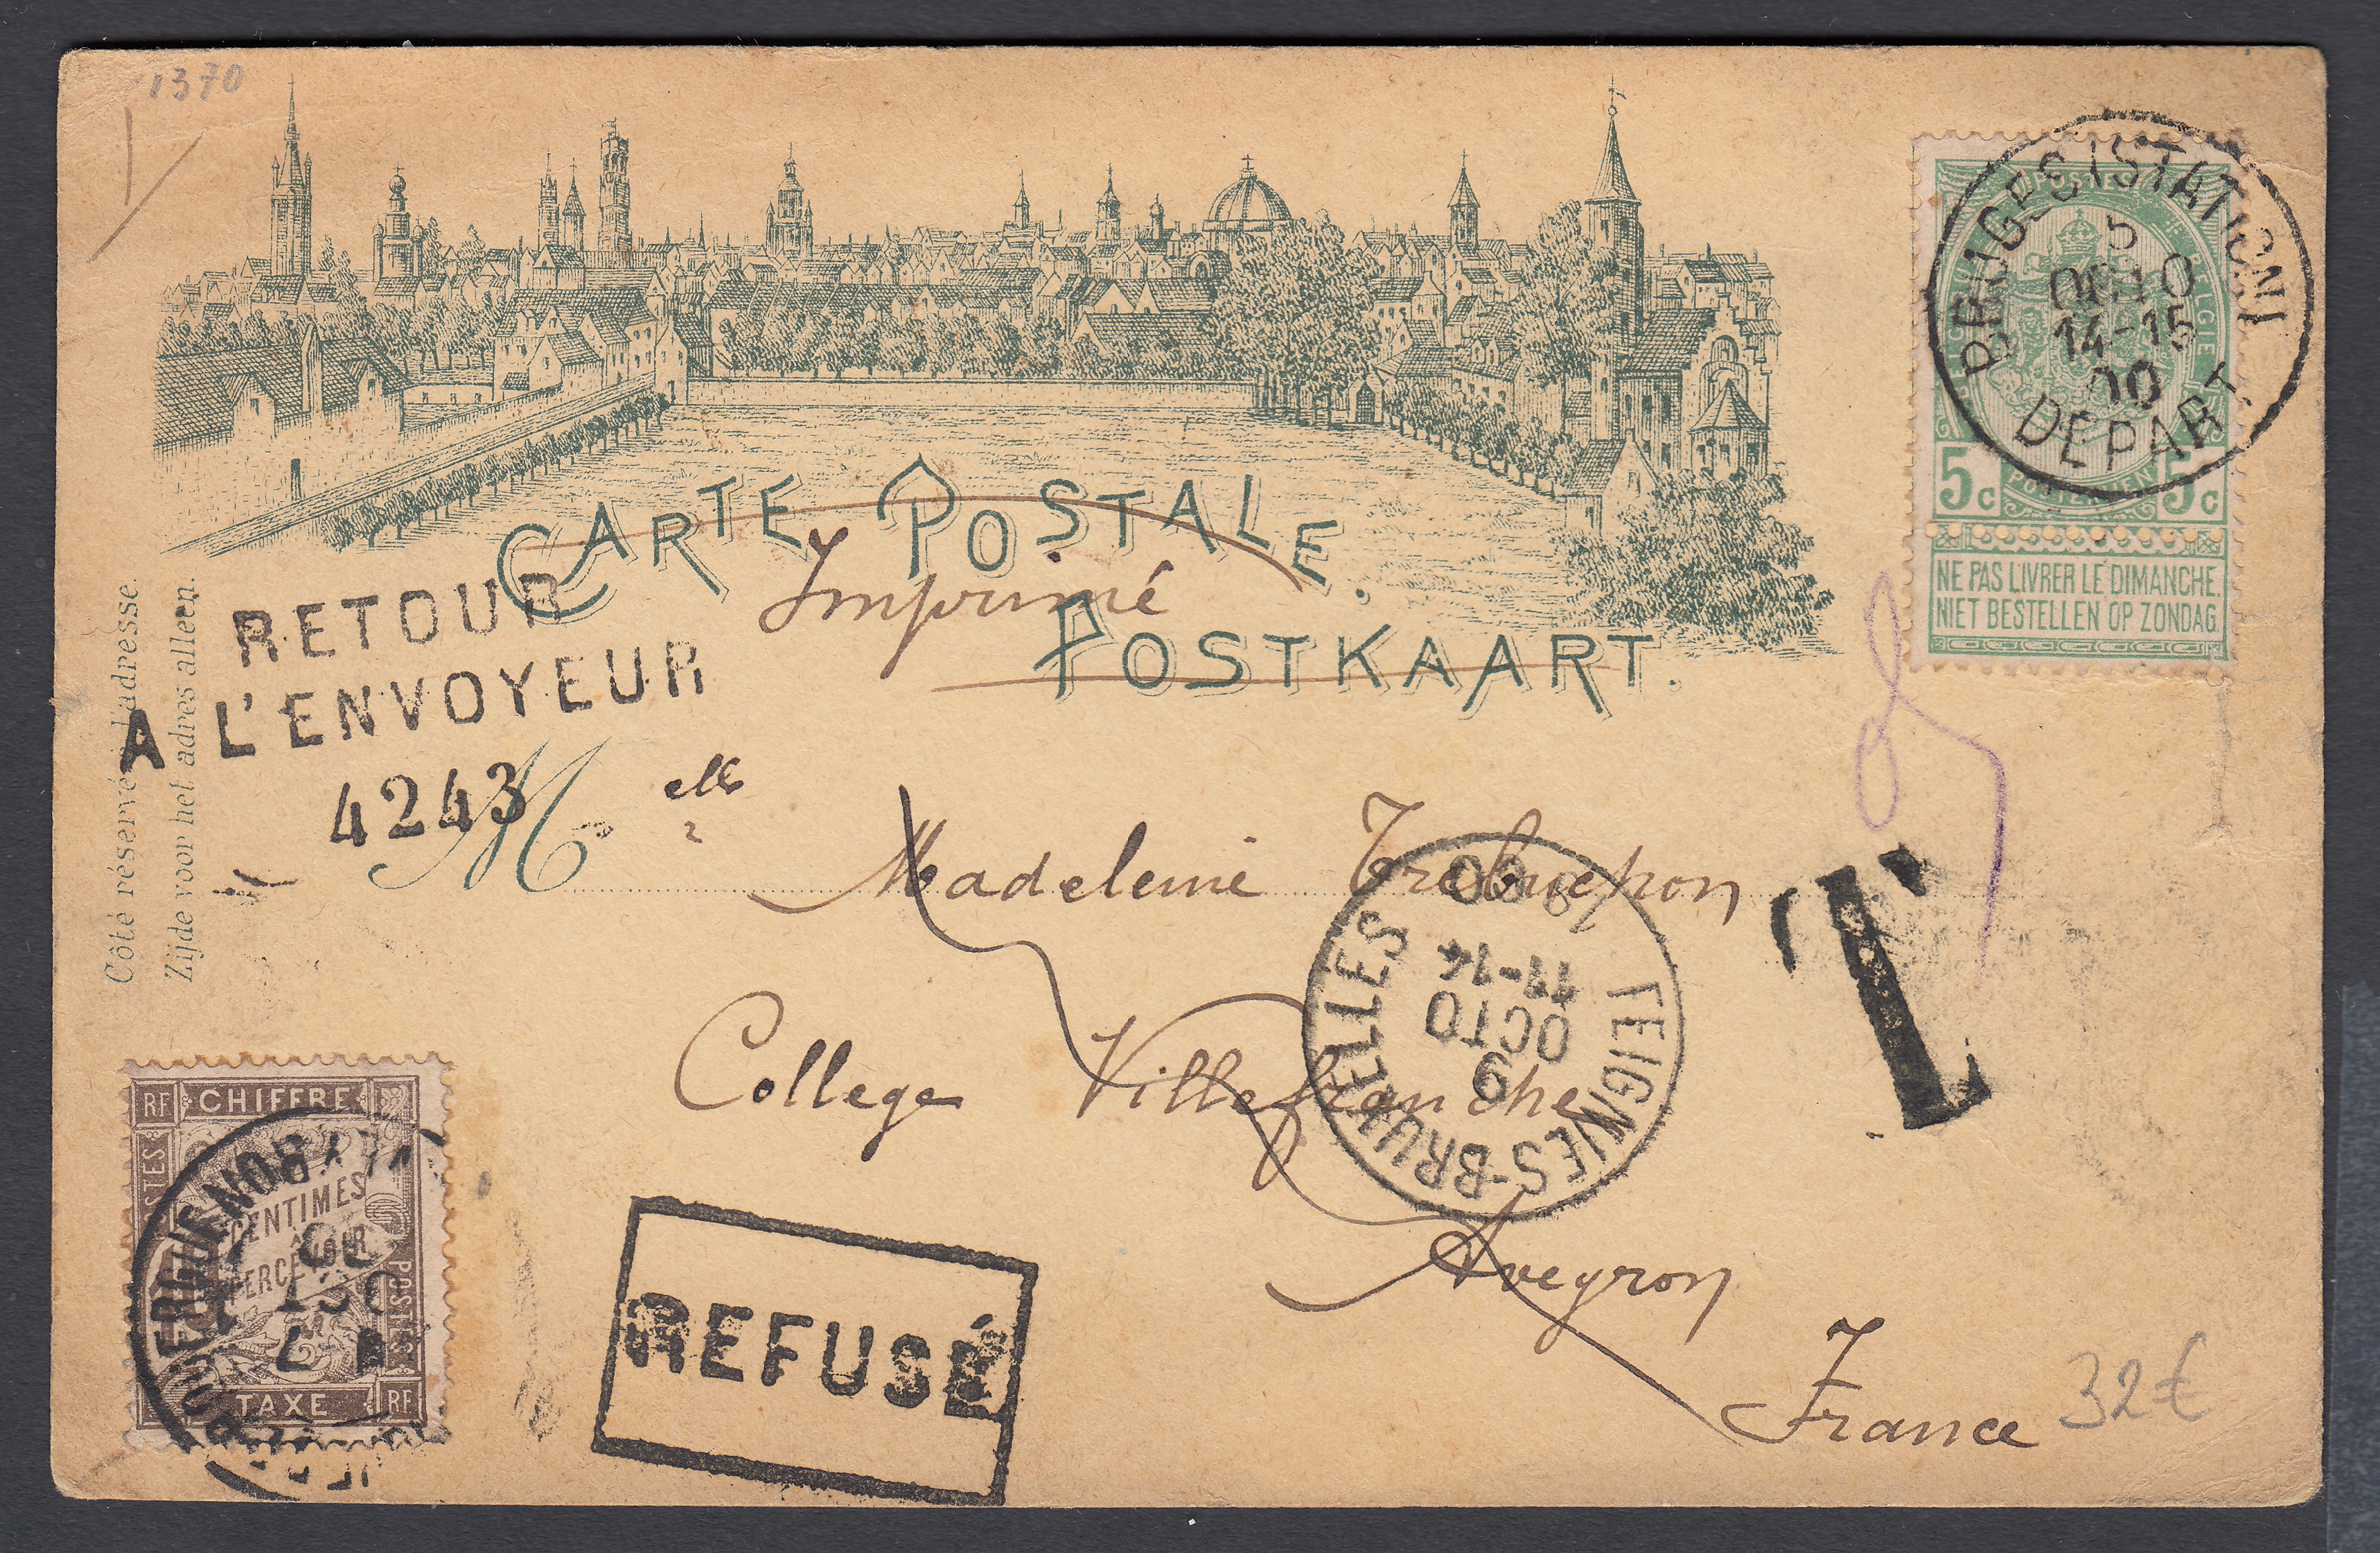 1370
CARTE POSTALE.
Imprimé
POSTKAART.
Côté réservé à l'adresse.
Zijde voor het adres alleen.
BRUGES (STATION)
5
OCTO
14-15
00
DEPART
POSTES
BELGIE
5c 5c
NE PAS LIVRER LE DIMANCHE.
NIET BESTELLEN OP ZONDAG.
RETOUR
A L'ENVOYEUR
4243
M elle
Madeleine Trebuchon
College Villefranche
Aveyron
France
T
FEIGNIES-BRUXELLES
9
OCTO
11-14
00
RF CHIFFRE
POSTES
CENTIMES
À
PERCEVOIR
POSTES
TAXE RF
REFUSÉ
32€